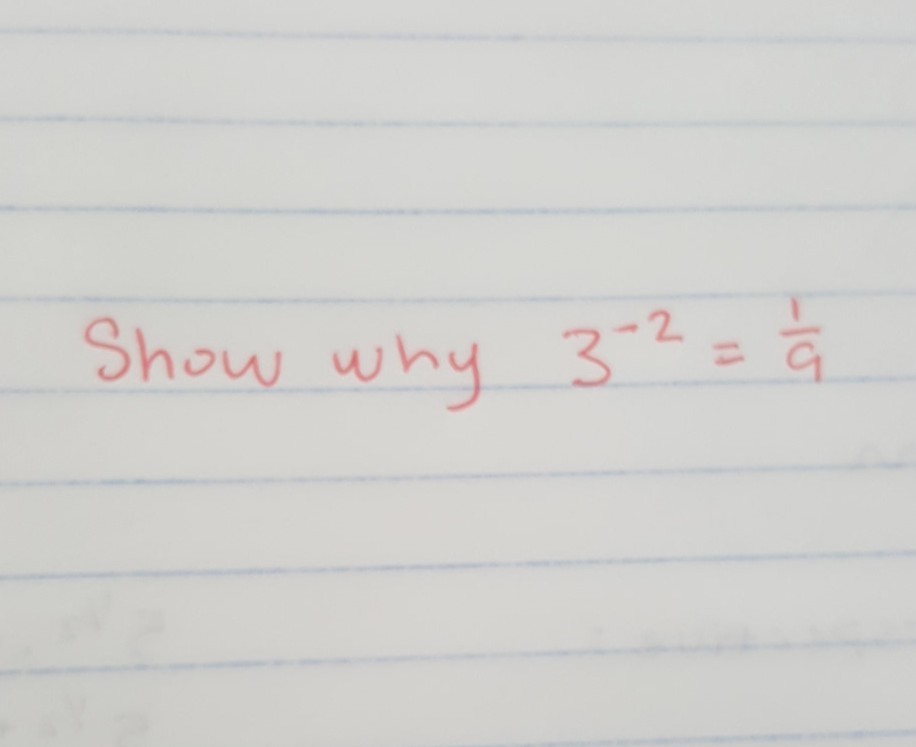 Show why 3⁻² = 1/9